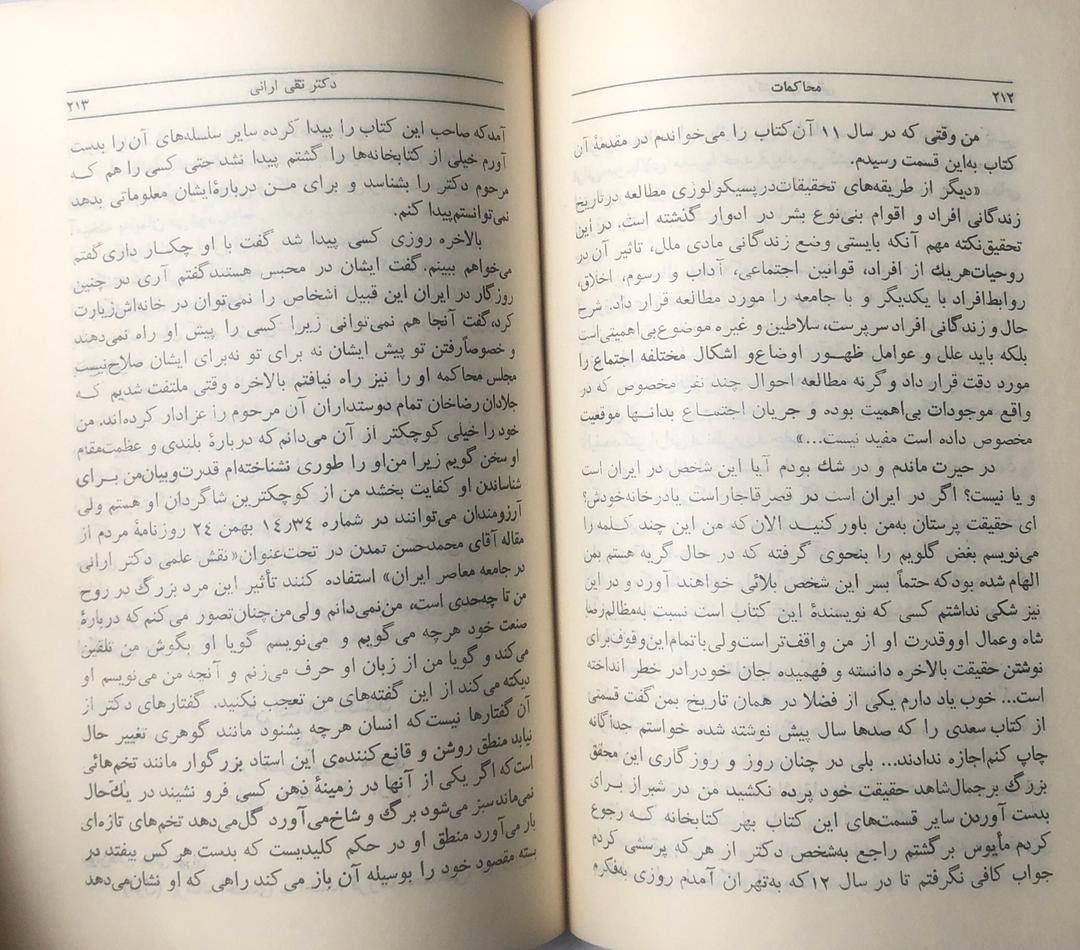 ۲۱۲
محاکمات
من وقتی که در سال ۱۱ آن‌کتاب را می‌خواندم در مقدمهٔ آن
کتاب به‌این قسمت رسیدم.
«دیگر از طریقه‌های تحقیقات‌درپسیکولوزی مطالعه درتاریخ
زندگانی افراد و اقوام بنی‌نوع بشر در ادوار گذشته است. در این
تحقیق‌نکته مهم آنکه بایستی وضع زندگانی مادی ملل، تاثیر آن‌در
روحیات‌هریك از افراد، قوانین اجتماعی، آداب و رسوم، اخلاق،
روابط‌افراد با یکدیگر و با جامعه را مورد مطالعه قرار داد. شرح
حال و زندگانی افراد سرپرست، سلاطین و غیره موضوع‌بی‌اهمیتی‌است
بلکه باید علل و عوامل ظهور اوضاع‌و اشکال مختلفه اجتماع‌را
مورد دقت قرار داد و گرنه مطالعه احوال چند نفر مخصوص که در
واقع موجودات بی‌اهمیت بوده و جریان اجتماع بدانها موقعیت
مخصوص داده است مفید نیست...»
در حیرت ماندم و در شك بودم آیا این شخص در ایران است
و یا نیست؟ اگر در ایران است در قصر قاجاراست یادرخانه‌خودش؟
ای حقیقت پرستان به‌من باور کنید الان‌که من این چند کلمه‌را
می‌نویسم بغض گلویم را بنحوی گرفته که در حال گریه هستم بمن
الهام شده بودکه حتماً بسر این شخص بلائی خواهند آورد و در این
نیز شکی نداشتم کسی که نویسندهٔ این کتاب است نسبت به‌مظالم‌رضا
شاه وعمال اووقدرت او از من واقف‌تر است‌ولی‌باتمام‌این‌وقوف‌برای
نوشتن حقیقت بالاخره دانسته و فهمیده جان خودرادر خطر انداخته
است... خوب یاد دارم یکی از فضلا در همان تاریخ بمن گفت قسمتی
از کتاب سعدی را که صدها سال پیش نوشته شده خواستم جداگانه
چاپ کنم‌اجازه ندادند... بلی در چنان روز و روزگاری این محقق
بزرگ برجمال‌شاهد حقیقت خود پرده نکشید من در شیراز برای
بدست آوردن سایر قسمت‌های این کتاب بهر کتابخانه که رجوع
کردم مأیوس برگشتم راجع به‌شخص دکتر از هر که پرسشی کردم
جواب کافی نگرفتم تا در سال ۱۲که به‌تهران آمدم روزی به‌فکرم
دکتر تقی ارانی
۲۱۳
آمدکه صاحب این کتاب را پیدا کرده سایر سلسله‌های آن را بدست
آورم خیلی از کتابخانه‌ها را گشتم پیدا نشد حتی کسی را هم که
مرحوم دکتر را بشناسد و برای من دربارهٔ‌ایشان معلوماتی بدهد
نمی‌توانستم‌پیدا کنم.
بالاخره روزی کسی پیدا شد گفت با او چکار داری‌گفتم
می‌خواهم ببینم. گفت ایشان در محبس هستندگفتم آری در چنین
روزگار در ایران این قبیل اشخاص را نمی‌توان در خانه‌اش‌زیارت
کرد،گفت آنجا هم نمی‌توانی زیرا کسی را پیش او راه نمی‌دهند
و خصوصاً رفتن تو پیش ایشان نه برای تو نه‌برای ایشان صلاح‌نیست
مجلس محاکمه او را نیز راه نیافتم بالاخره وقتی ملتفت شدیم که
جلادان رضاخان تمام دوستداران آن مرحوم را عزادار کرده‌اند. من
خود را خیلی کوچکتر از آن می‌دانم‌که دربارهٔ بلندی و عظمت‌مقام
او سخن گویم زیرا من‌او را طوری نشناخته‌ام قدرت‌وبیان‌من برای
شناساندن او کفایت بخشد من از کوچکترین شاگردان او هستم ولی
آرزومندان می‌توانند در شماره ۱۴ر۳۴ بهمن ۲۴ روزنامهٔ مردم از
مقاله آقای محمدحسن تمدن در تحت‌عنوان«نقش علمی دکتر ارانی
در جامعه معاصر ایران» استفاده کنند تأثیر این مرد بزرگ در روح
من تا چه‌حدی است، من‌نمی‌دانم ولی‌من‌چنان‌تصور می‌کنم که دربارهٔ
صنعت خود هرچه می‌گویم و می‌نویسم گویا او بگوش من تلقین
می‌کند و گویا من از زبان او حرف می‌زنم و آنچه من می‌نویسم او
دیکته می‌کند از این گفته‌های من تعجب نکنید. گفتارهای دکتر از
آن گفتارها نیست‌که انسان هرچه بشنود مانند گوهری تغییر حال
نیابد منطق روشن و قانع‌کننده‌ی این استاد بزرگوار مانند تخم‌هائی
است‌که اگر یکی از آنها در زمینهٔ ذهن کسی فرو نشیند در یك‌حال
نمی‌ماند سبز می‌شود برگ و شاخ‌می‌آورد گل‌می‌دهد تخم‌های تازه‌ای
بار می‌آورد منطق او در حکم کلیدیست که بدست هر کس بیفتد در
بسته مقصود خود را بوسیله آن باز می‌کند راهی که او نشان‌می‌دهد